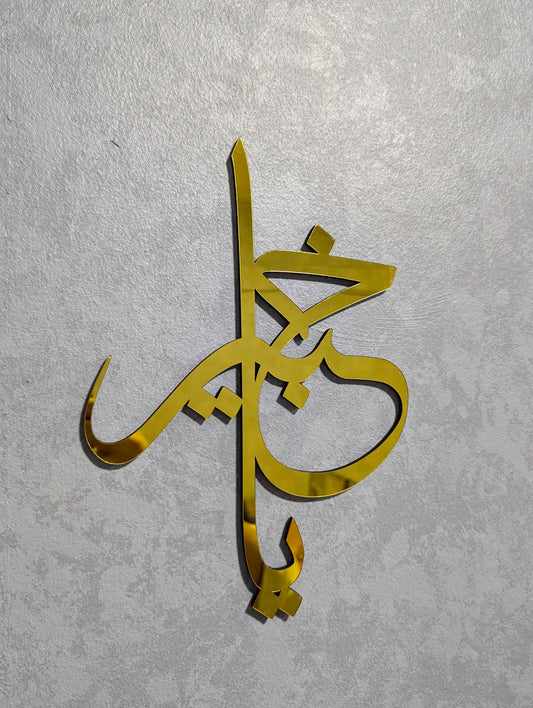 يا خبير